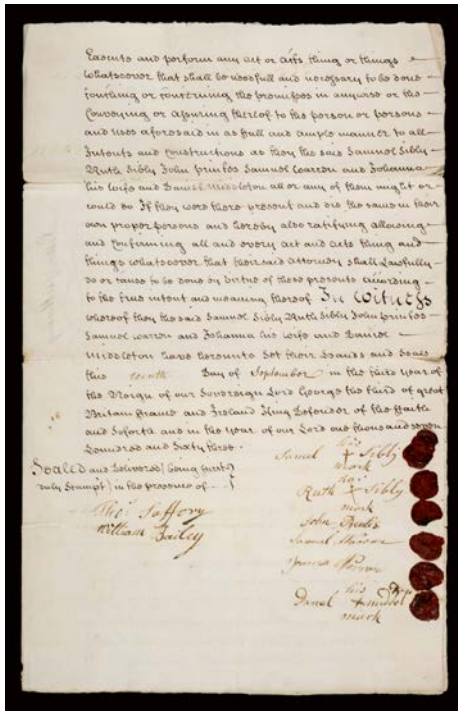 Execute and perform any act or acts thing or things
whatsoever that shall be needfull and necessary to be done
touching or concerning the premisses in anywise or the
Conveying or assuring thereof to the person or persons
and uses aforesaid in as full and ample manner to all
Intents and Constructions as they the said Samuel Sibly
Ruth Sibly John Samuel Warren and Johanna
his wife and Daniel Middleton all or any of them might or
could do If they were there present and did the same in their
own proper persons and hereby also ratifying allowing
and Confirming all and every act and acts thing and
things whatsoever that their said Attorney shall Lawfully
do or cause to be done by virtue of these presents according
to the true intent and meaning thereof In Witness
whereof they the said Samuel Sibly Ruth Sibly John
Samuel Warren and Johanna his wife and Daniel
Middleton have hereunto Set their Hands and Seals
this Day of September in the third year of
the Reign of our Sovereign Lord George the third of great
Britain France and Ireland King Defender of the Faith
and Soforth and in the year of our Lord one thousand seven
hundred and Sixty three.
Sealed and Delivered (being first
duly Stampt) in the presence of
Saffory
William Bailey
his
Samuel + Sibly
mark
her
Ruth + Sibly
mark
John
Samuel Warren
Warren
his
Daniel +
mark